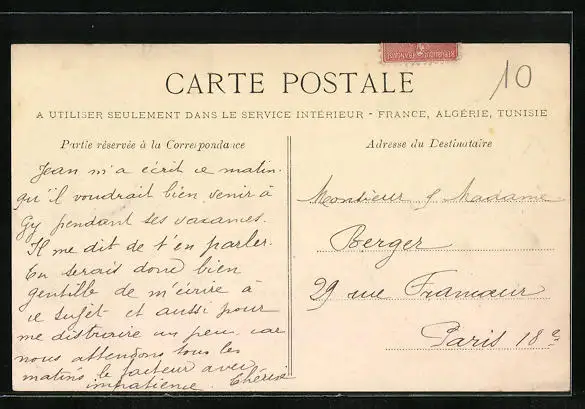 RÉPUBLIQUE FRANÇAISE
10
CARTE POSTALE
A UTILISER SEULEMENT DANS LE SERVICE INTÉRIEUR - FRANCE, ALGÉRIE, TUNISIE
Partie réservée à la Correspondance
Jean m'a écrit ce matin
qu'il voudrait bien venir à
Gy pendant ses vacances.
Il me dit de t'en parler.
Tu serais donc bien
gentille de m'écrire à
ce sujet et aussi pour
me distraire un peu car
nous attendons tous les
matins le facteur avec
impatience.
Adresse du Destinataire
Monsieur & Madame
Berger
29 rue Francœur
Paris 18e